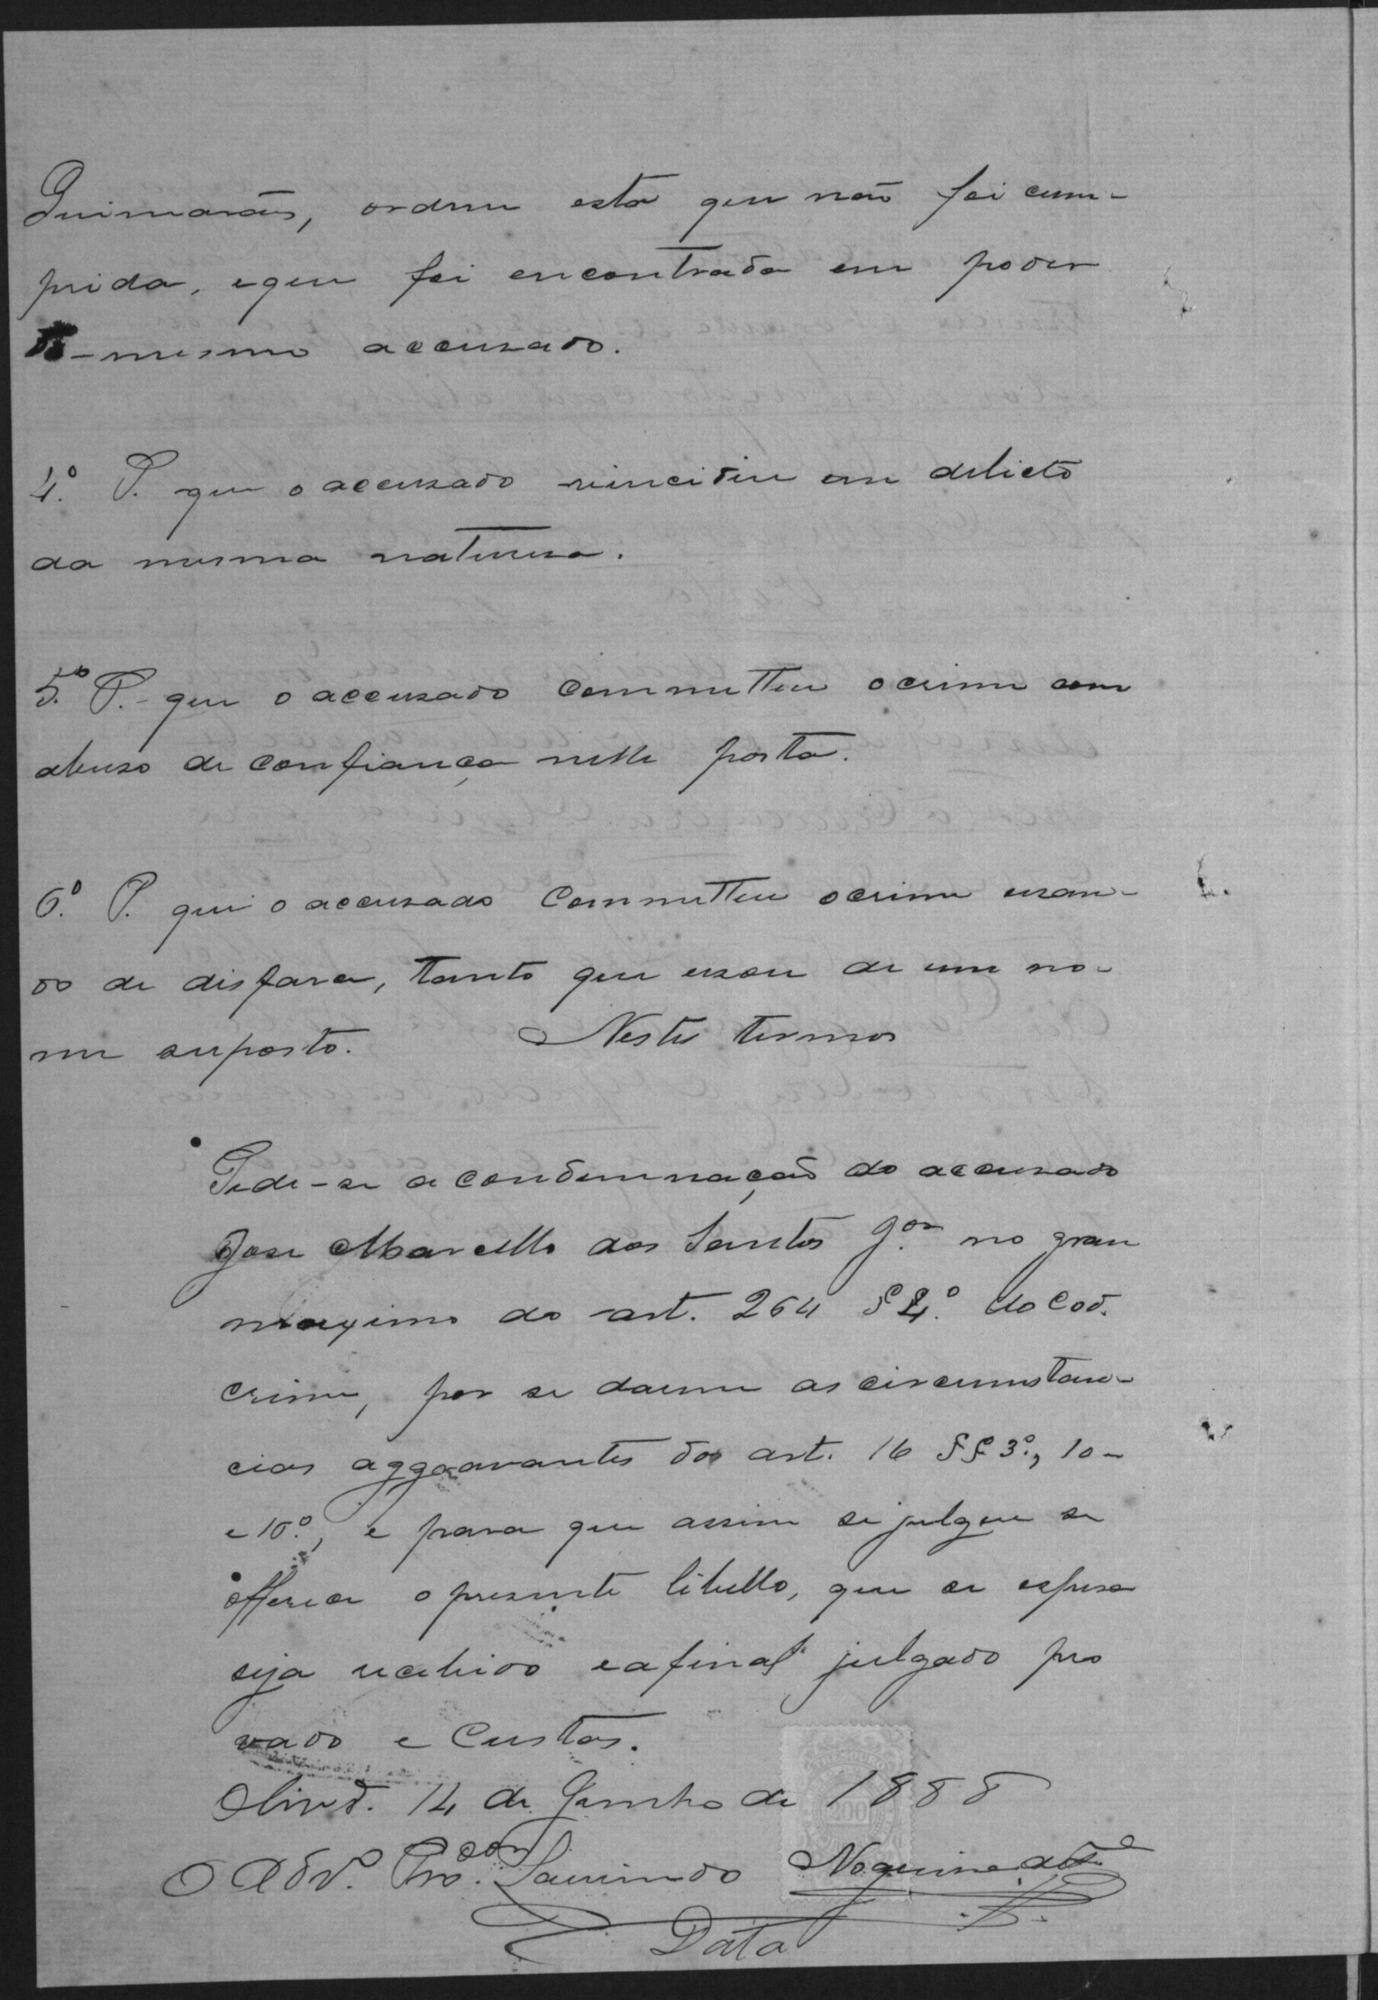 Guimarães, ordem esta que não foi cum-
prida, e que foi encontrada em poder
do mesmo accusado.
4.º P. que o accusado reincidiu em delicto
da mesma naturesa.
5.º P. que o accusado commetteu o crime com
abuso de confiança nelle posta.
6.º P. que o accusado commetteu o crime usan-
do de disfarce, tanto que usou de um no-
me suposto. Nestes termos
Pede-se a condemnação do accusado
José Marcello dos Santos J.or no grau
maximo do art. 264 § 4.º do Cod.
crime, por se darem as circumstan-
cias aggravantes do art. 16 §§ 3.º, 10
e 10.º, e para que assim se julgue se
offerece o presente libello, que se espera
seja recebido e afinal julgado pro
vado e Custas.
14 de Junho de 1888
O Adv.º Pro.cor
Data
200